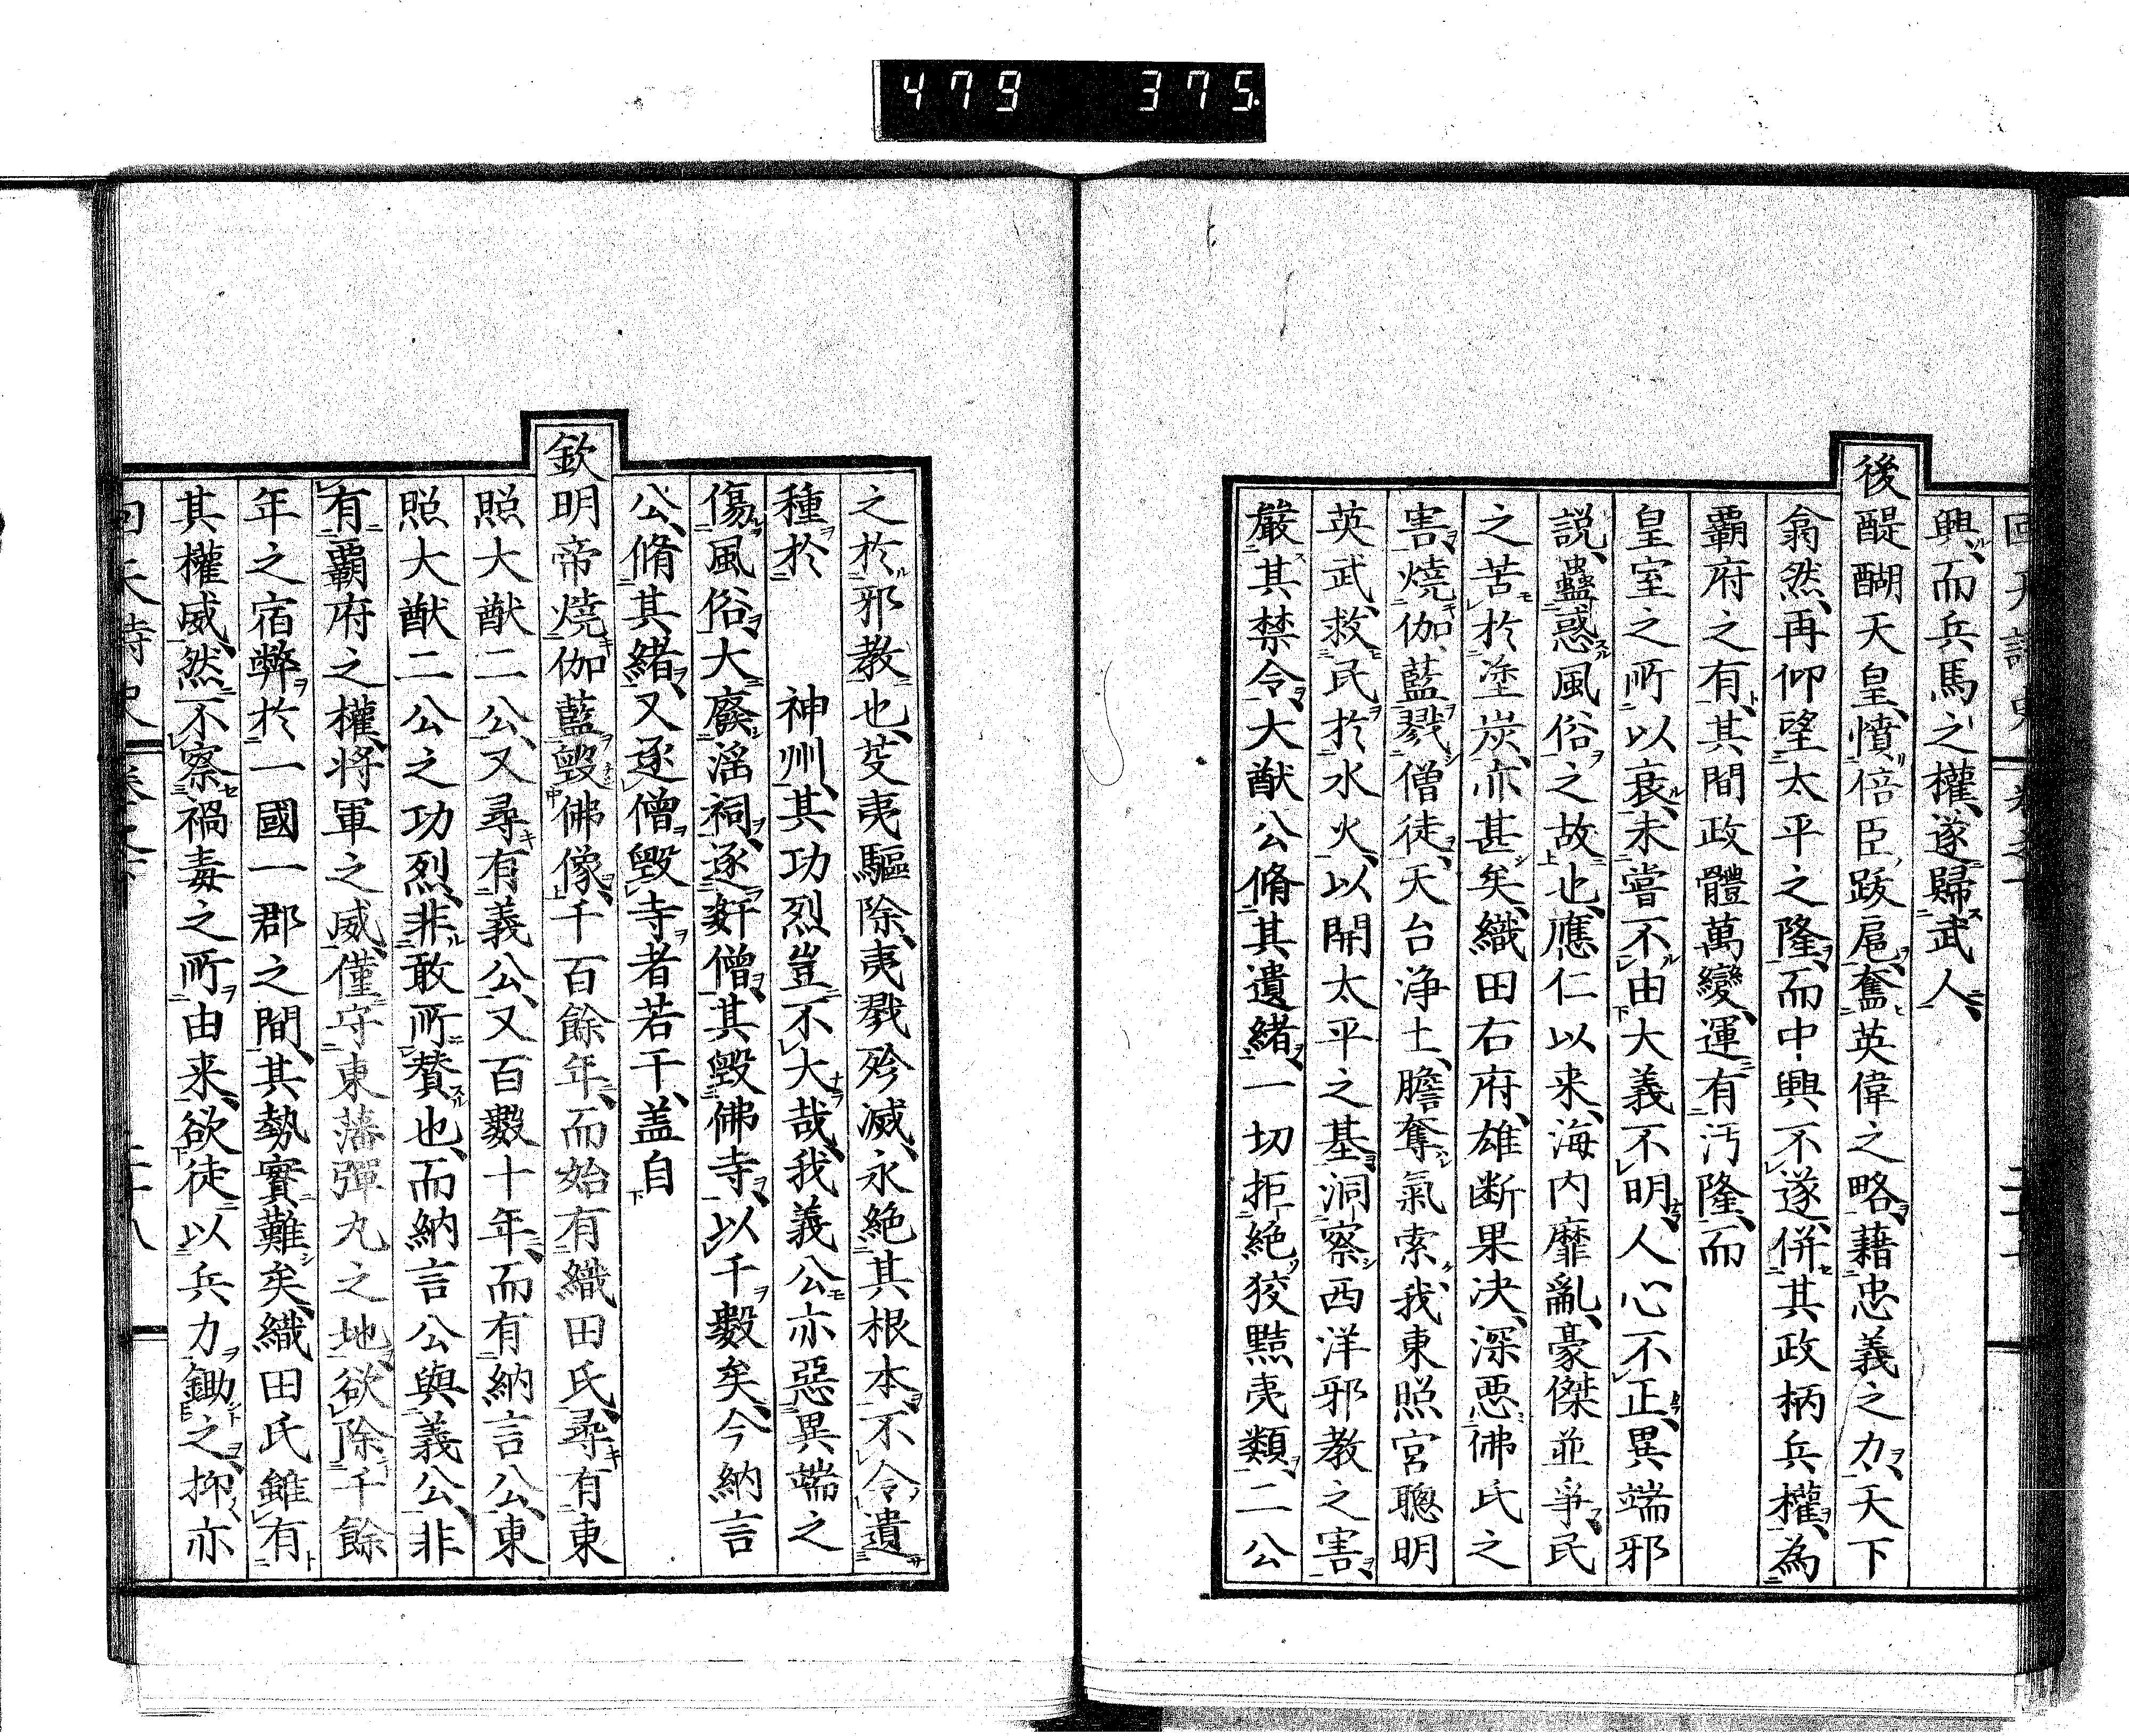 479 375
興、而兵馬之權、遂歸武人、
後醍醐天皇、憤倍臣跋扈、奮英偉之略、藉忠義之力、天下
翕然、再仰望太平之隆、而中興不遂、併其政柄兵權、為
覇府之有、其間政體萬變、運有汚隆、而
皇室之所以衰、未嘗不由大義不明、人心不正、異端邪
説、蠱惑風俗之故也、應仁以来、海内靡亂、豪傑並爭、民
之苦於塗炭、亦甚矣、織田右府、雄断果决、深悪佛氏之
害、燒伽藍戮僧徒、天台浄土、膽奪氣索、我東照宮聰明
英武、救民於水火、以開太平之基、洞察西洋邪教之害、
嚴其禁令、大猷公脩其遺緒、一切拒絶狡黠夷類、二公
之於邪教也、芟夷驅除、夷戮殄滅、永絶其根本、不令遺
種於 神州、其功烈豈不大哉、我義公亦惡異端之
傷風俗、大廢滛祠、逐姧僧、其毀佛寺、以千數矣、今納言
公、脩其緒、又逐僧毀寺者若干、盖自
欽明帝燒伽藍毀佛像、千百餘年、而始有織田氏、尋有東
照大猷二公、又尋有義公、又百數十年、而有納言公、東
照大猷二公之功烈、非敢所賛也、而納言公與義公、非
有覇府之權、将軍之威、僅守東藩彈丸之地、欲除千餘
年之宿弊於一國一郡之間、其勢實難矣、織田氏雖有
其權威、然不察禍毒之所由来、欲徒以兵力鋤之、抑亦